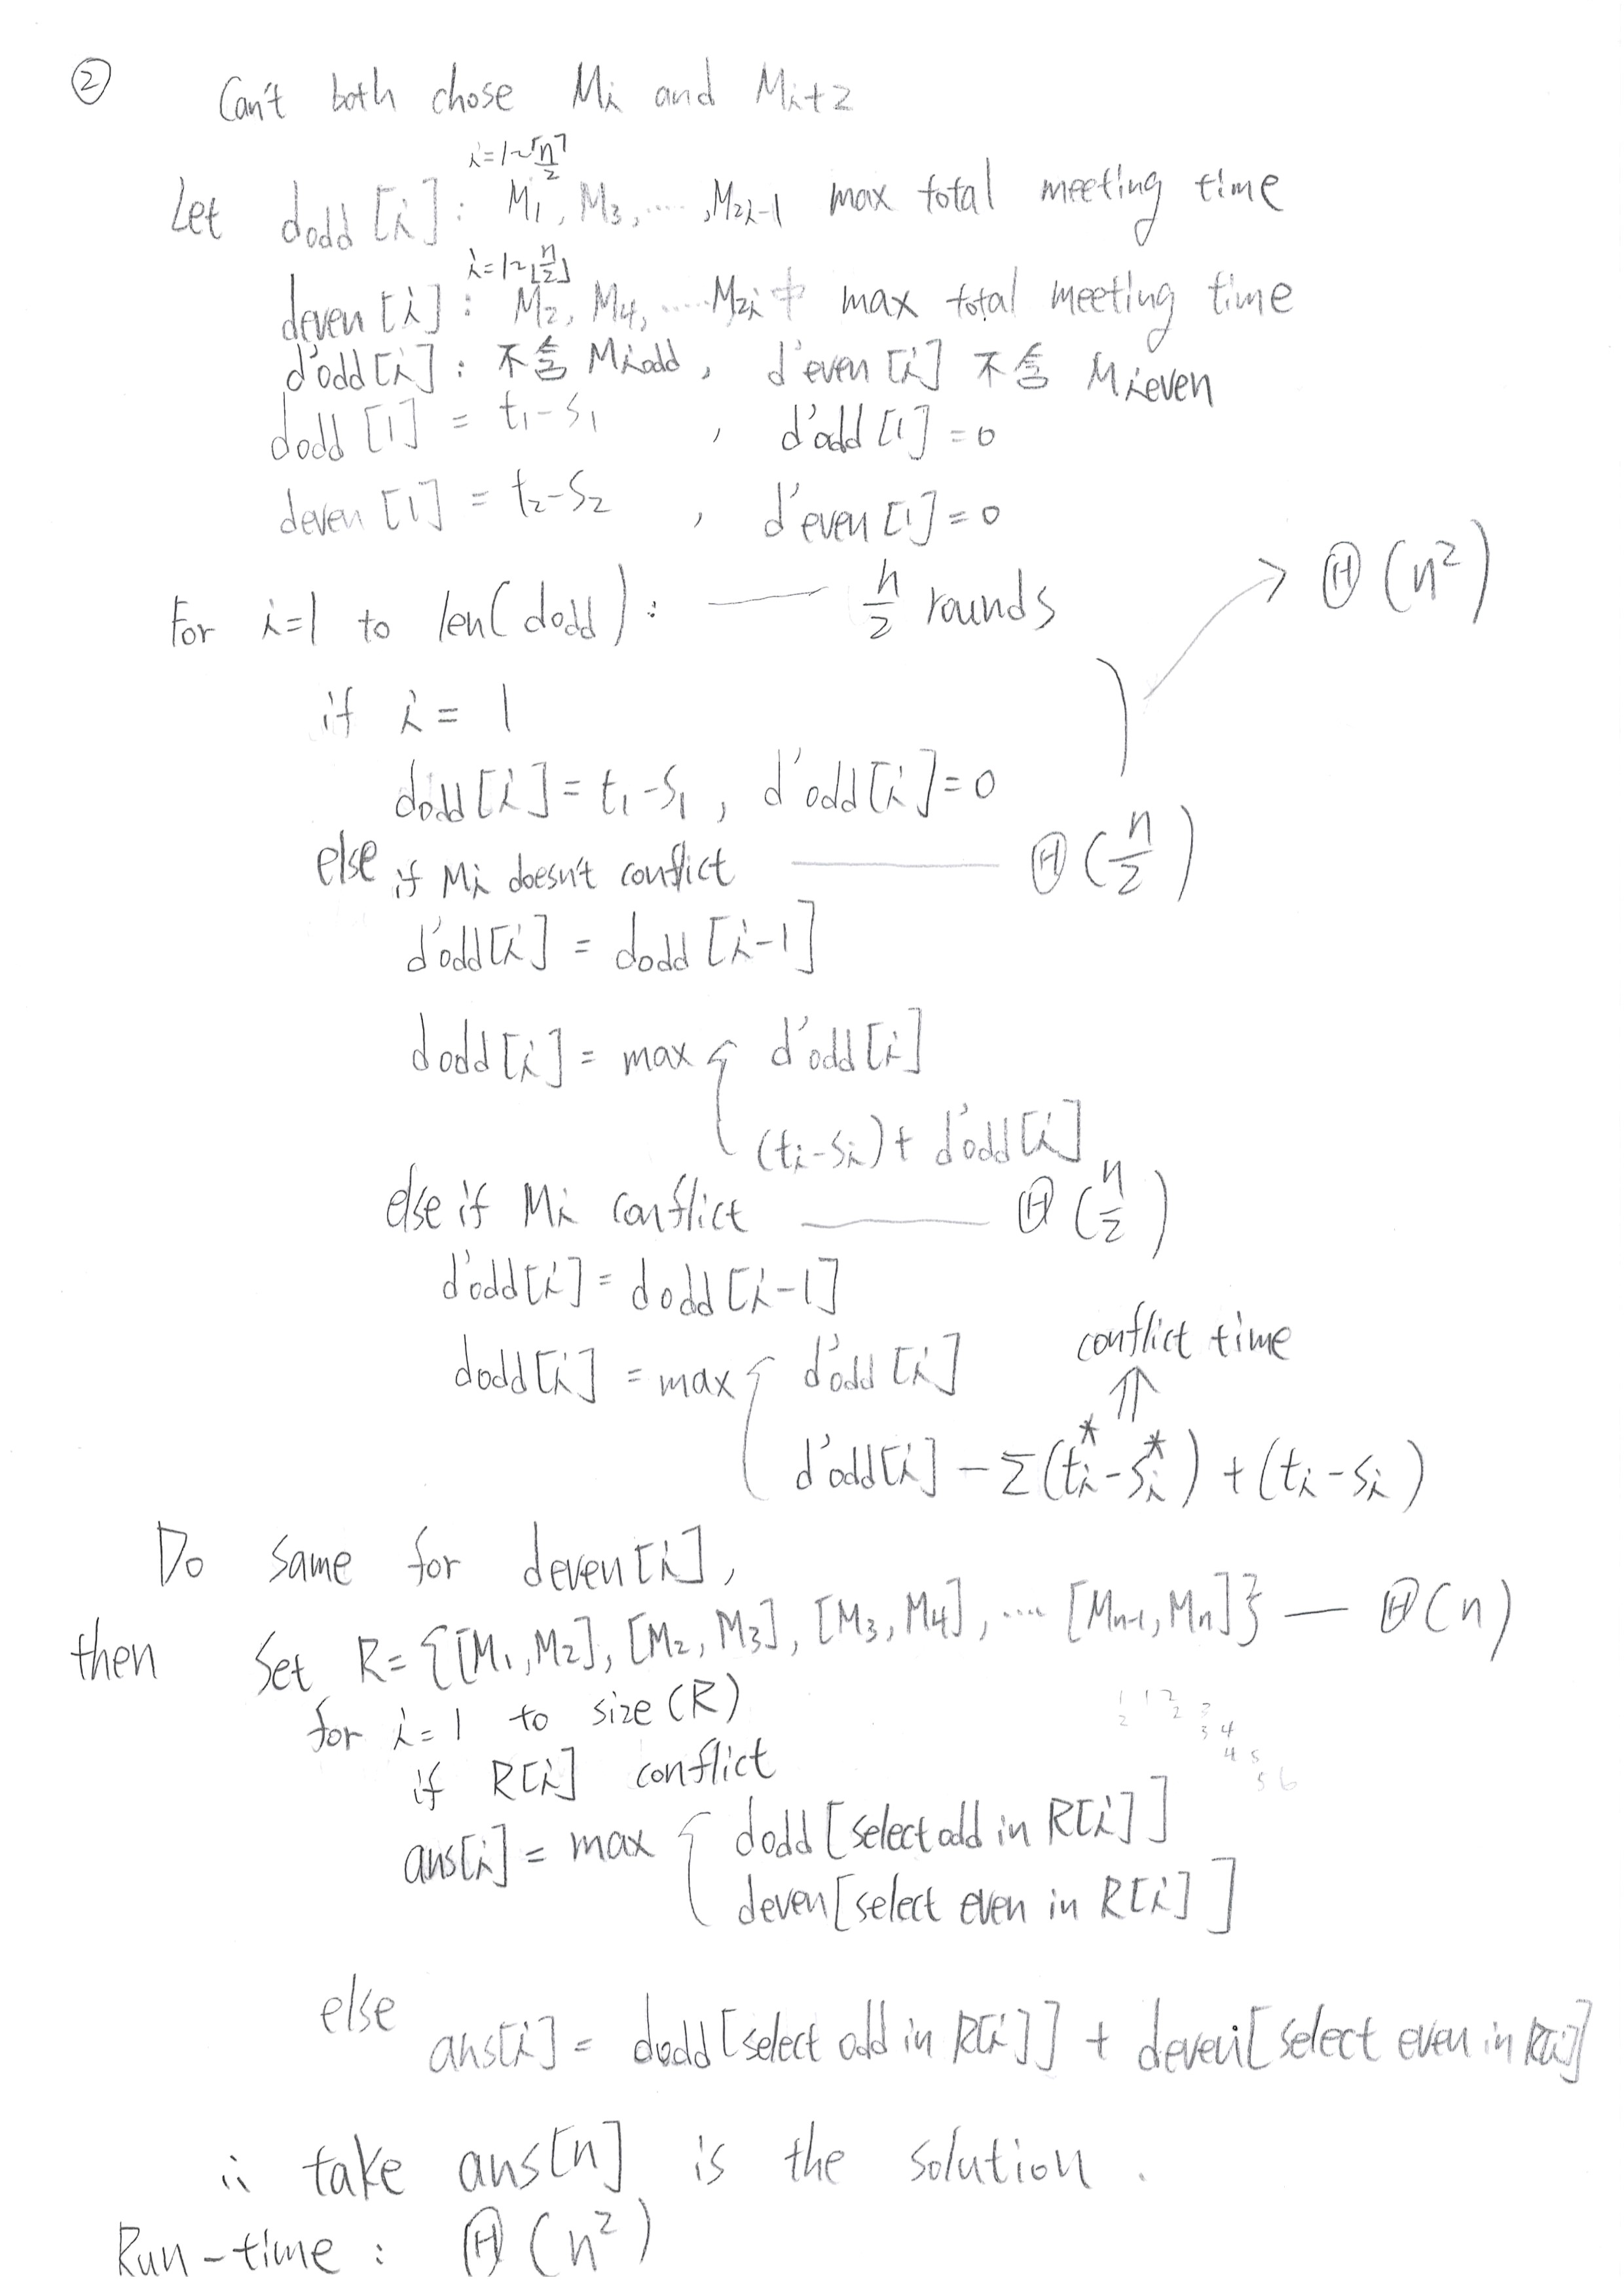 ② Can't both chose Mi and Mi+2
i=1~⌈n/2⌉
Let dodd [i]: M1, M3, ....., M2i-1 max total meeting time
i=1~⌊n/2⌋
deven [i]: M2, M4, ..... M2i 中 max total meeting time
d'odd[i]: 不含 Miodd, d'even [i] 不含 Mieven
dodd [1] = t1-s1 , d'odd [1] = 0
deven [1] = t2-s2 , d'even [1] = 0
For i=1 to len(dodd): — n/2 rounds → Θ(n²)
if i = 1
dodd[i] = t1-s1, d'odd[i]=0
else if Mi doesn't conflict — Θ(n/2)
d'odd[i] = dodd [i-1]
dodd[i] = max { d'odd[i]
(ti-si)+ d'odd[i]
else if Mi conflict — Θ(n/2)
d'odd[i] = dodd [i-1]
conflict time
⇑
dodd[i] = max { d'odd [i]
d'odd[i] - Σ(ti*-si*) + (ti-si)
Do same for deven[i],
then Set R={[M1,M2], [M2,M3], [M3,M4], .... [Mn-1,Mn]} — Θ(n)
for i=1 to size(R)
1 1 2 3
2 2 3 4
4 5
5 6
if R[i] conflict
ans[i] = max { dodd [select odd in R[i]]
deven[select even in R[i]]
else ans[i] = dodd[select odd in R[i]] + deven[select even in R[i]]
∴ take ans[n] is the solution.
Run-time: Θ(n²)